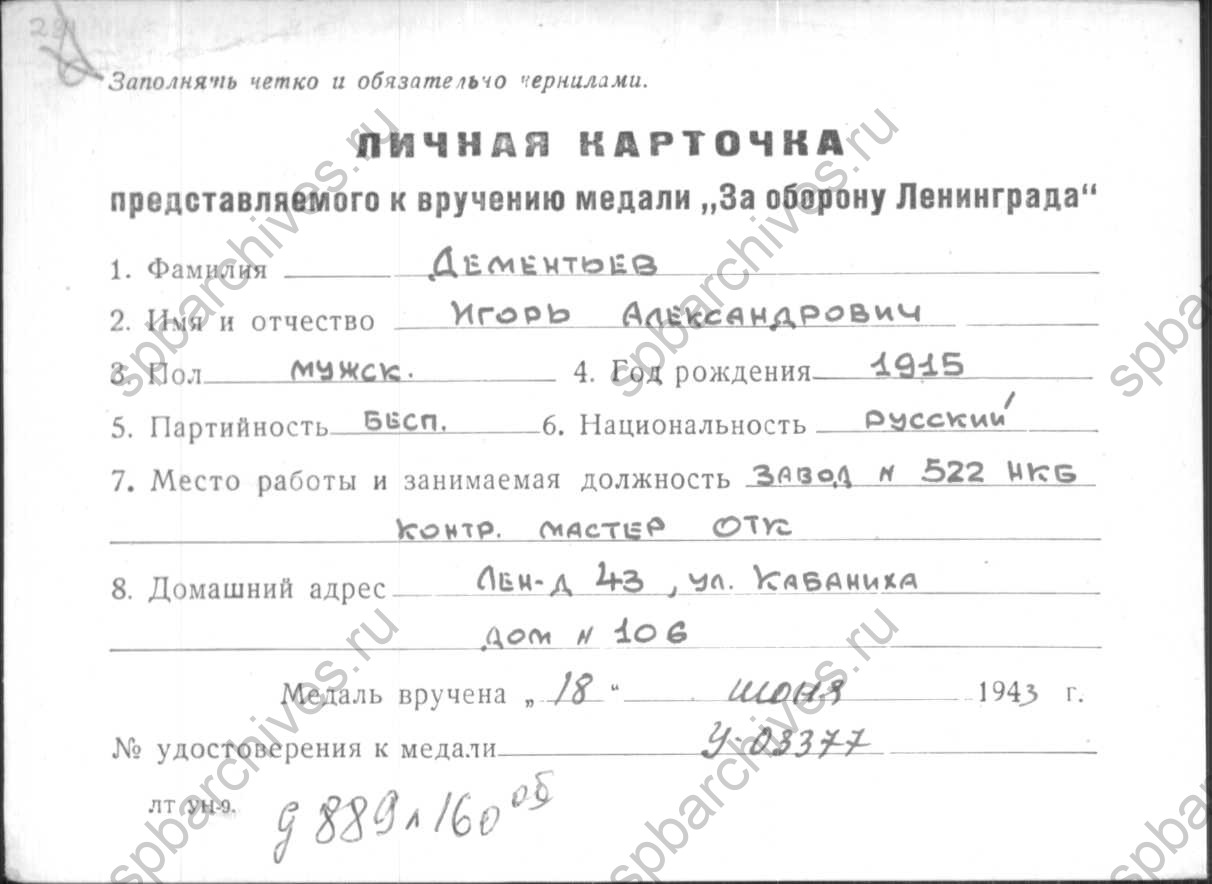 Заполнять четко и обязательно чернилами.
ЛИЧНАЯ КАРТОЧКА
представляемого к вручению медали „За оборону Ленинграда“
1. Фамилия Дементьев
2. Имя и отчество Игорь Александрович
3. Пол мужск. 4. Год рождения 1915
5. Партийность Бесп. 6. Национальность Русский
7. Место работы и занимаемая должность Завод № 522 НКБ
контр. мастер ОТК
8. Домашний адрес Лен-д 43, ул. Кабаниха
дом № 106
Медаль вручена „18“ июня 1943 г.
№ удостоверения к медали У-03377
ЛТ УН-9.
д 889 л 160 об
spbarchives.ru
spbarchives.ru
spbarchives.ru
spbarchives.ru